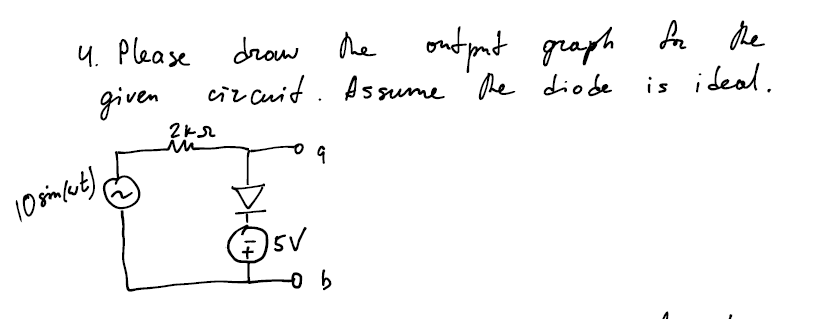 4. Please draw the output graph for the
given circuit. Assume the diode is ideal.
2kΩ
a
10 sin(ωt)
-
+
5V
b